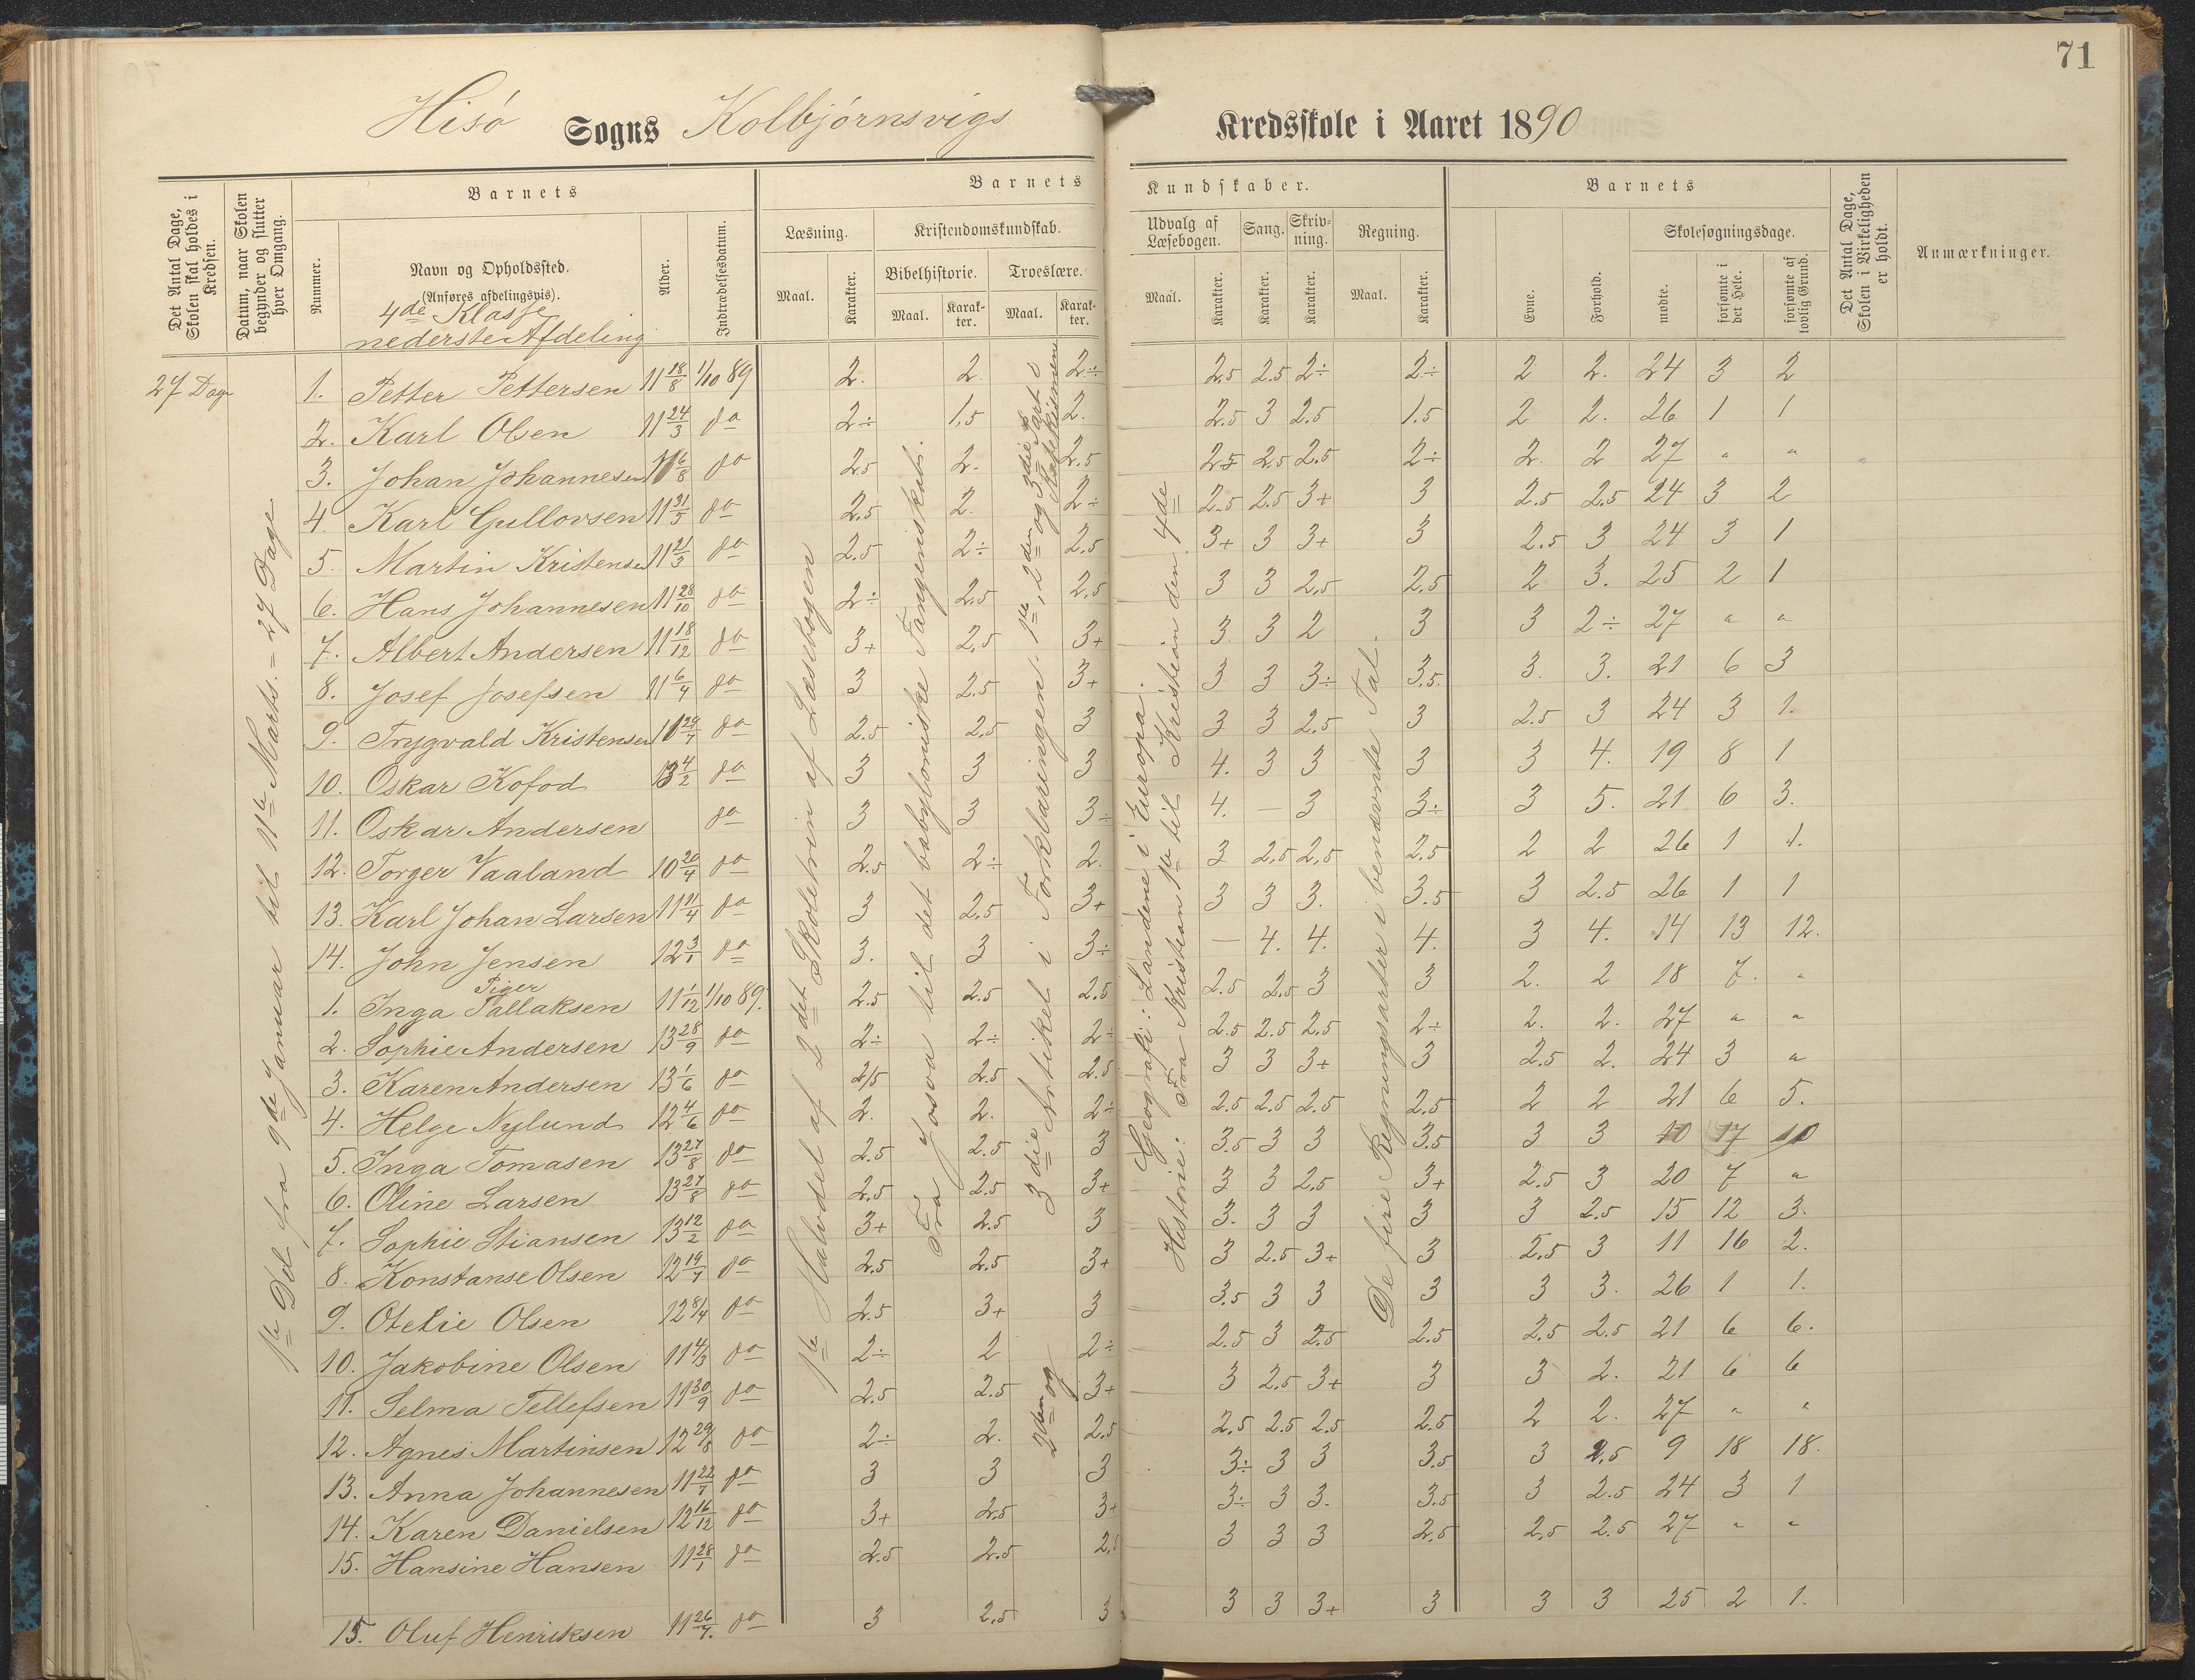 71
Hisö Sogns Kolbjörnsvigs Kredsskole i Aaret 1890
Det Antal Dage, Skolen skal holdes i Kredsen.
Datum, naar Skolen begynder og slutter hver Omgang.
Barnets
Nummer.
Navn og Opholdssted.
(Anføres afdelingsvis).
4de Klasse
nederste Afdeling
Alder.
Indtrædelsesdatum.
Barnets Kundskaber.
Læsning.
Maal.
Karakter.
Kristendomskundskab.
Bibelhistorie.
Maal.
Karakter.
Troeslære.
Maal.
Karakter.
Udvalg af Læsebogen.
Maal.
Karakter.
Sang.
Karakter.
Skrivning.
Karakter.
Regning.
Maal.
Karakter.
Barnets
Evne.
Forhold.
Skolesøgningsdage.
mødte.
forsømte i det Hele.
forsømte af lovlig Grund.
Det Antal Dage, Skolen i Virkeligheden er holdt.
Anmærkninger.
27 Dage
1ste Del fra 9de Januar til 11te Marts. = 27 Dage
1ste Halvdel af 2det Skoletrin af Læsebogen
Fra Josva til det babyloniske Fangenskab.
3die Artikel i Forklaringen. 1ste, 2den og 3die Part i Katekismen
2den og
Geografi: Landene i Europa.
Historie: Fra Kristian 1ste til Kristian den 4de
De fire Regningsarter i benævnte Tal.
1. Petter Pettersen 11 18/8 1/10 89 2. 2. 2÷ 2.5 2.5 2÷ 2÷ 2 2. 24 3 2
2. Karl Olsen 11 24/3 do 2÷ 1,5 2. 2.5 3 2.5 1.5 2 2. 26 1 1
3. Johan Johannesen 11 6/8 do 2.5 2. 2.5 2.5 2.5 2.5 2÷ 2. 2 27 " "
4. Karl Gullovsen 11 31/5 do 2.5 2. 2÷ 2.5 2.5 3+ 3 2.5 2.5 24 3 2
5. Martin Kristensen 11 21/3 do 2.5 2÷ 2.5 3+ 3 3+ 3 2.5 3 24 3 1
6. Hans Johannesen 11 28/10 do 2÷ 2.5 2.5 3 3 2.5 2.5 2 3. 25 2 1
7. Albert Andersen 11 18/12 do 3+ 2.5 3+ 3 3 2 3 3 2÷ 27 " "
8. Josef Josefsen 11 6/4 do 3 2.5 3+ 3 3 3÷ 3.5. 3. 3. 21 6 3
9. Trygvald Kristensen 11 29/7 do 2.5 2.5 3 3 3 2.5 3 2.5 3 24 3 1.
10. Oskar Kofod 13 4/2 do 3 3 3 4. 3 3 3 3 4. 19 8 1
11. Oskar Andersen do 3 3 3÷ 4. — 3 3÷ 3 5. 21 6 3.
12. Torger Vaaland 10 20/4 do 2.5 2÷ 2. 3 2.5 2.5 2.5 2 2 26 1 1.
13. Karl Johan Larsen 11 11/4 do 3 2.5 3+ 3 3 3. 3.5 3 2.5 26 1 1
14. John Jensen 12 3/1 do 3. 3 3÷ — 4. 4. 4. 3 4. 14 13 12.
Piger
1. Inga Tallaksen 11 1/12 1/10 89. 2.5 2.5 2.5 2.5 2.5 3 3 2. 2 18 7. "
2. Sophie Andersen 13 28/9 do 2÷ 2÷ 2÷ 2.5 2.5 2.5 2÷ 2. 2. 27 " "
3. Karen Andersen 13 1/6 do 2,5 2.5 2.5 3 3 3+ 3 2.5 2. 24 3 "
4. Helge Nylund 12 4/6 do 2. 2. 2÷ 2.5 2.5 2.5 2.5 2 2 21 6 5.
5. Inga Tomasen 13 27/8 do 2.5 2.5 3 3.5 3 3 3.5 3 3 10 17 10
6. Oline Larsen 13 27/8 do 2.5 2.5 3+ 3 3 2.5 3+ 2.5 3 20 7 "
7. Sophie Stiansen 13 12/2 do 3+ 2.5 3 3. 3 3 3 3 2.5 15 12 3.
8. Konstanse Olsen 12 19/7 do 2.5 2.5 3+ 3 2.5 3+ 3 2.5 3 11 16 2.
9. Otelie Olsen 12 8/4 do 2.5 3+ 3 3.5 3 3 3 3 3. 26 1 1.
10. Jakobine Olsen 11 4/3 do 2÷ 2 2÷ 2.5 3 2.5 2.5 2.5 2.5 21 6 6.
11. Selma Tellefsen 11 30/9 do 2.5 2.5 3+ 3 2.5 3+ 3 3 2. 21 6 6
12. Agnes Martinsen 12 29/8 do 2÷ 2. 2.5 2.5 2.5 2.5 2.5 2 2. 27 " "
13. Anna Johannesen 11 22/7 do 3 3 3 3÷ 3 3 3.5 3 2.5 9 18 18.
14. Karen Danielsen 12 16/12 do 3+ 2.5 3+ 3÷ 3 3. 3.5 3 2.5 24 3 1
15. Hansine Hansen 11 28/1 do 2.5 2.5 2.5 3 3 3 2.5 2.5 2.5 27 " "
15. Oluf Henriksen 11 26/7. do 3 2.5 3 3 3 3+ 3 3 3 25 2 1.